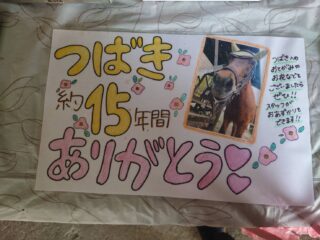 つばき
約15年間
ありがとう
つばきへの
おてがみや
お花などを
ございましたら
ぜひ!!
スタッフが
おあずかりも
できます!!